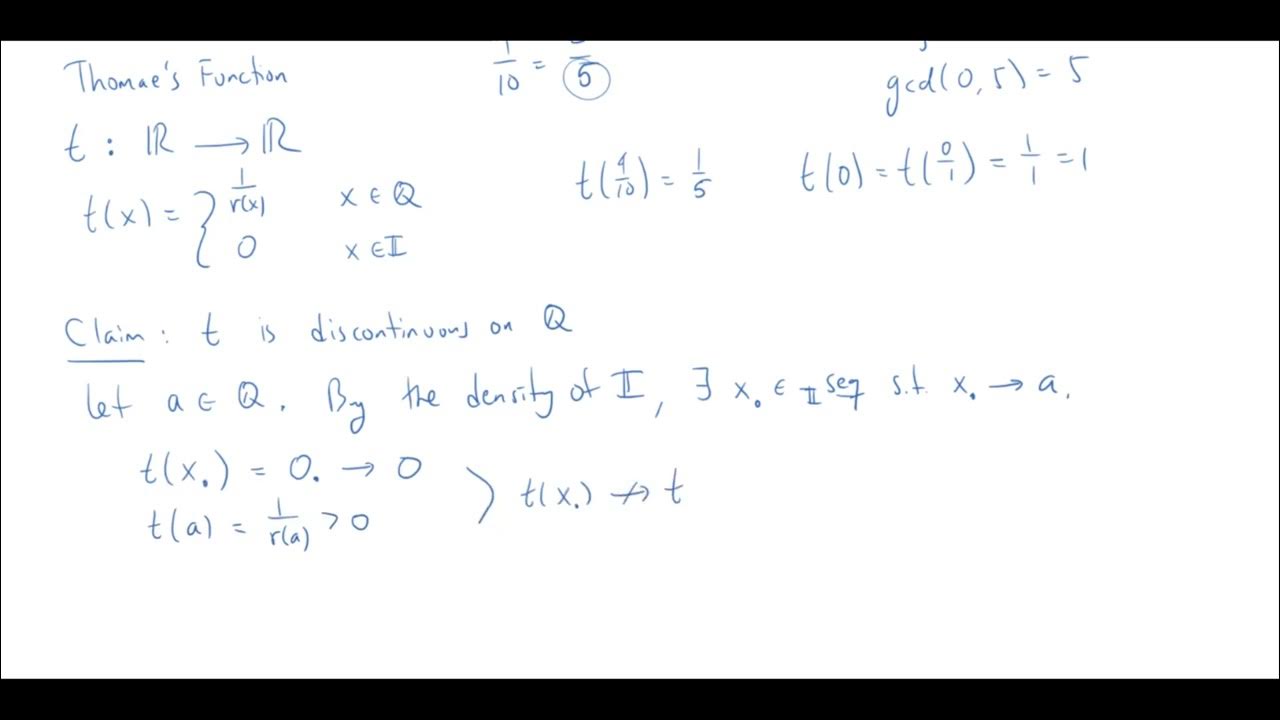 Thomae's Function
1/10 = /5
gcd(0, 5) = 5
t : ℝ → ℝ
t(x) = { 1/r(x) x ∈ ℚ
0 x ∈ 𝕀
t(4/10) = 1/5
t(0) = t(0/1) = 1/1 = 1
Claim : t is discontinuous on ℚ
let a ∈ ℚ. By the density of 𝕀, ∃ x. ∈ 𝕀 seq s.t. x. → a.
t(x.) = 0. → 0
t(a) = 1/r(a) > 0
⟩ t(x.) ↛ t